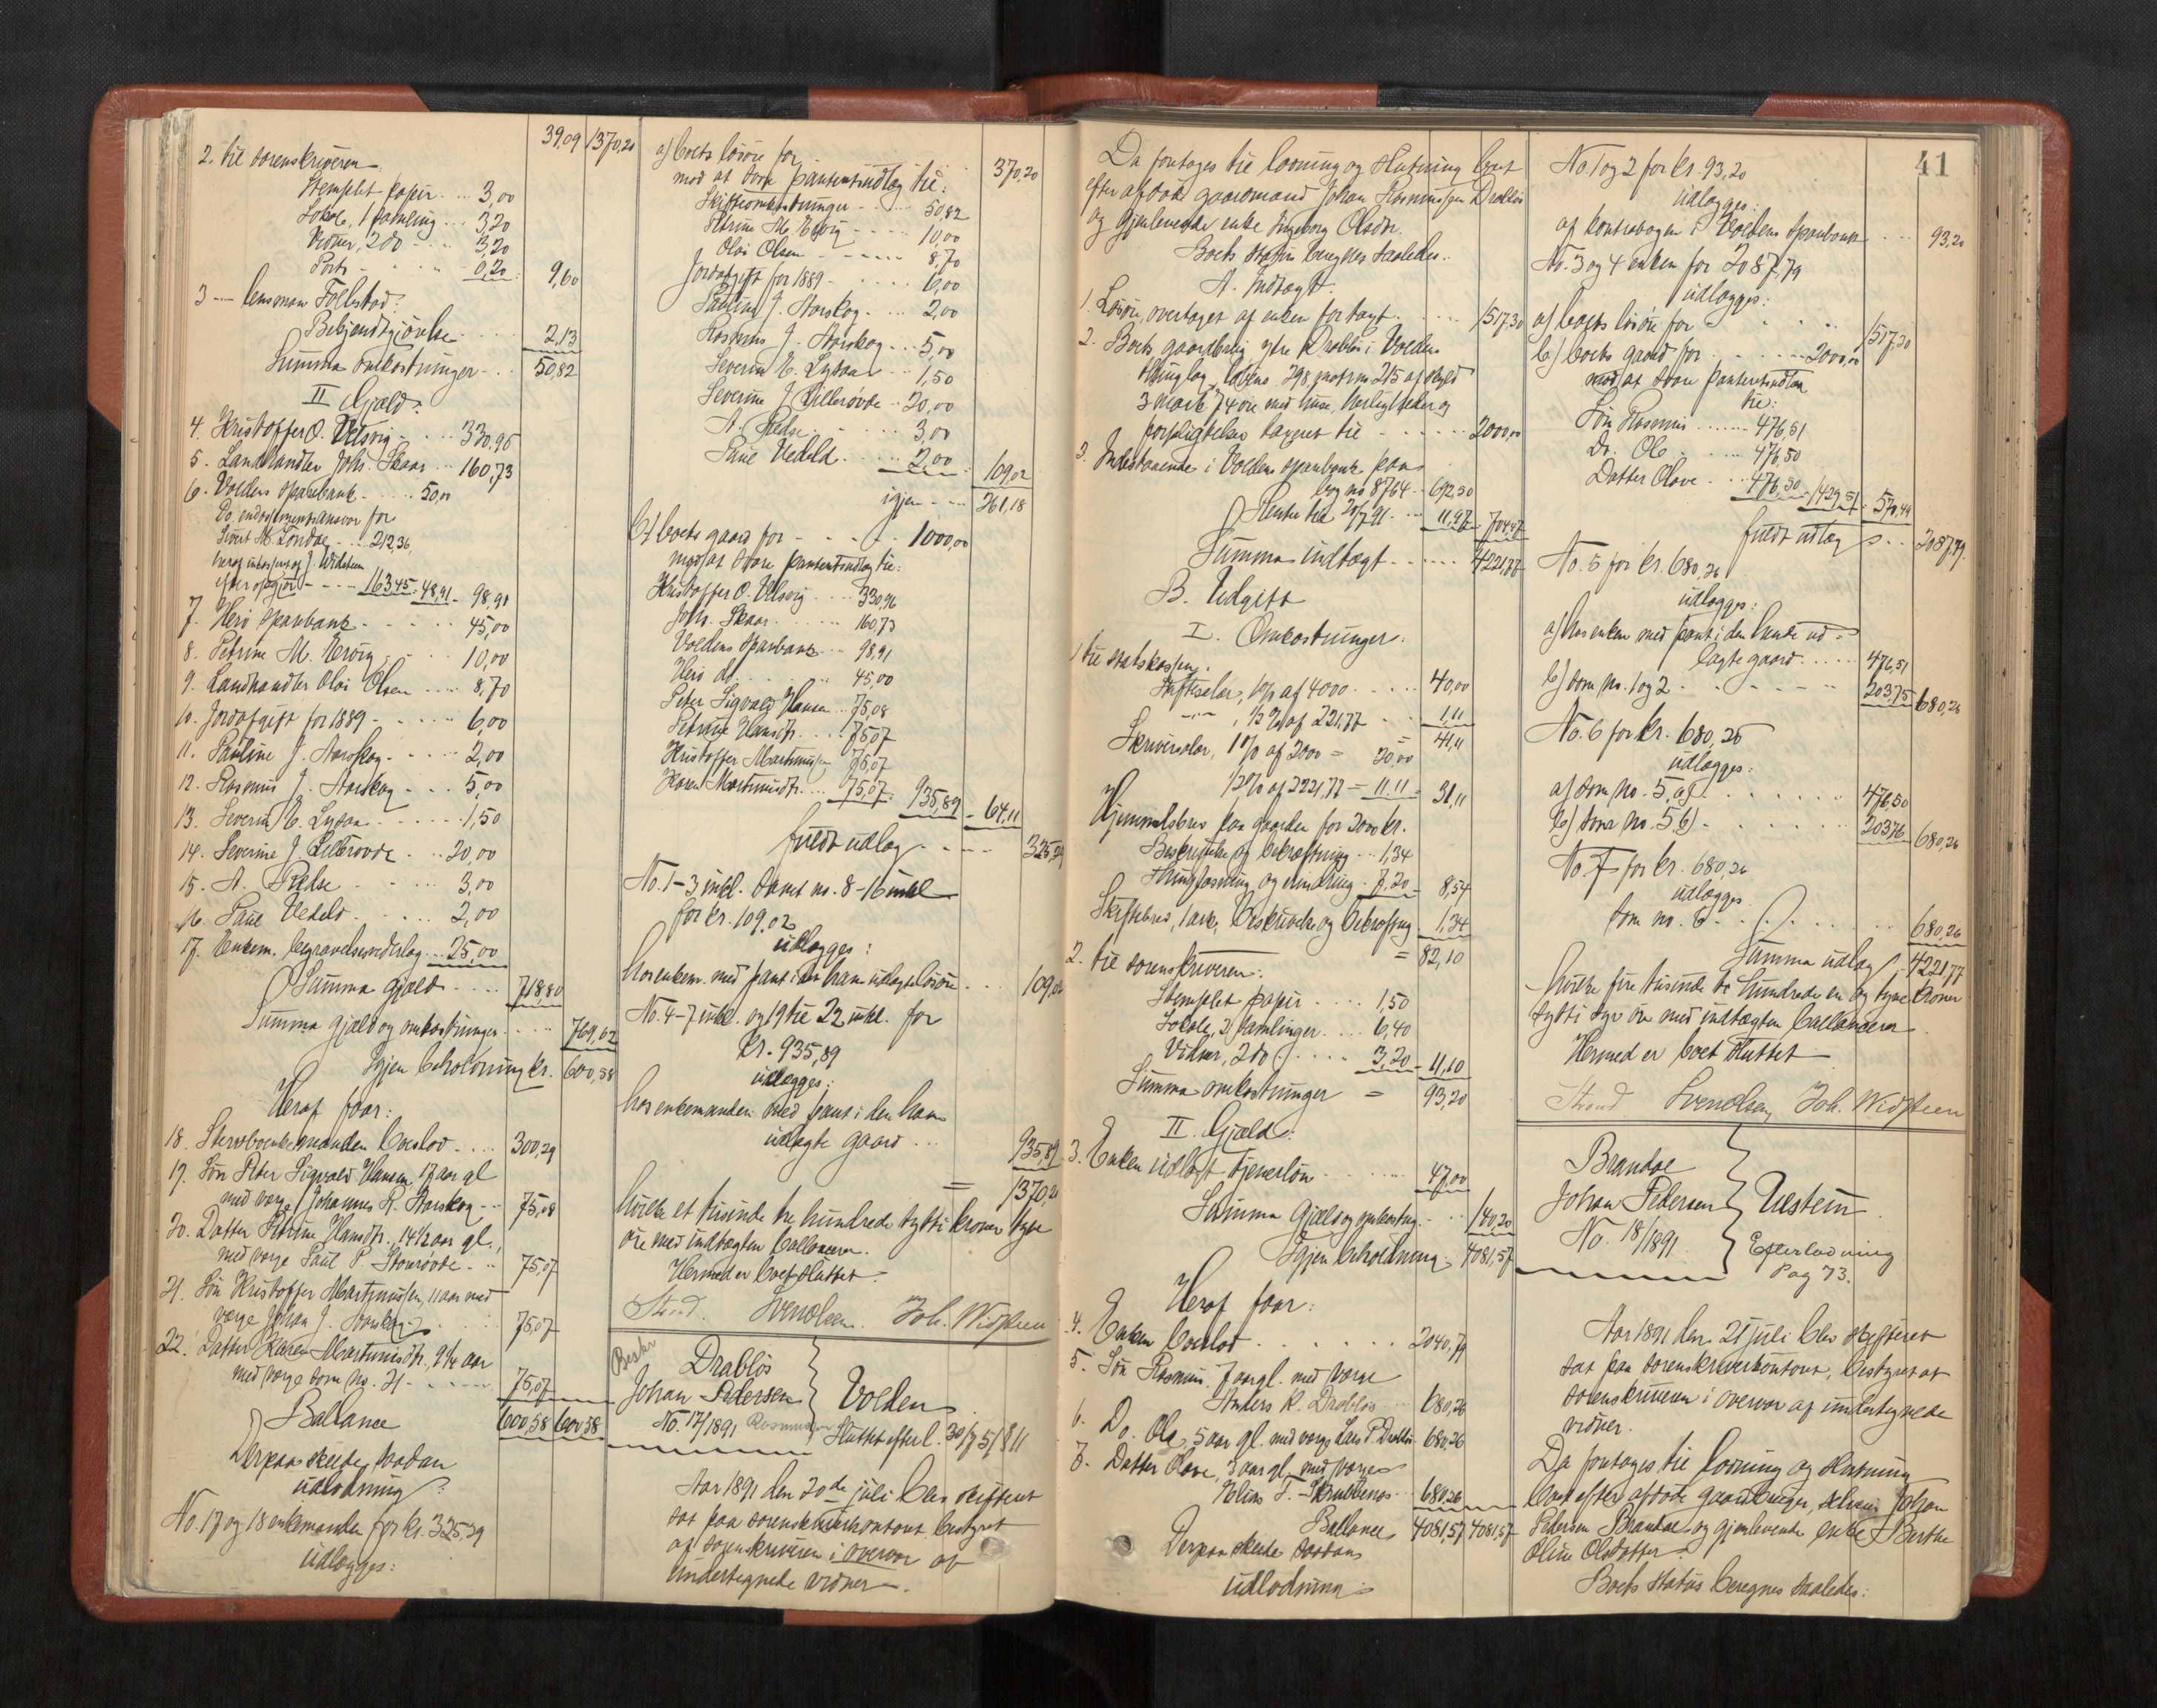 39,09 1370,20
2. til sorenskriveren
Stemplet papir ... 3,00
Lokale, 1 samling ... 3,20
Vidner, 2 do ... 3,20
Porto ... 0,20 9,60
3 — lensman Follestad:
Bekjendtgjörelse ... 2,13
Summa omkostninger ... 50,82
II Gjæld:
4. Kristoffer O. Velsvig ... 330,96
5. Landhandler Johs. Skaar ... 160,73
6. Voldens sparebank ... 50,00
Do endossementsansvar for
Sivert M. Londal ... 212,36
heraf inkasseret af J. Widsteen
efter opgjör ... 163,45 = 48,91 = 98,91
7. Herö sparebank ... 45,00
8. Petrine M. Ervig ... 10,00
9. Landhandler Olai Olsen ... 8,70
10. Jordafgift for 1889 ... 6,00
11. Pauline J. Aarskog ... 2,00
12. Rasmus J. Aarskog ... 5,00
13. Severin E. Lysaa ... 1,50
14. Severine J. Lillerövde ... 20,00
15. A. Relse ... 3,00
16. Paul Vedeld ... 2,00
17. Enkem. begravelsesvederlag ... 25,00
Summa gjæld ... 718,80
Summa gjæld og omkostninger ... 769,62
Igjen beholdning kr. 600,58
Heraf faar:
18. Stervboenkemanden boeslod ... 300,29
19. Sön Peter Sigvald Hansen, 17 aar gl.
med verge Johannes R. Aarskog ... 75,08
20. Datter Petrine Hansdtr., 14½ aar gl.,
med verge Paul P. Storrövde ... 75,07
21. Sön Kristoffer Martinussen, 11 aar med
verge Johan J. Aarskog ... 75,07
22. Datter Karen Martinusdtr, 9¼ aar
med verge som No. 21 ... 75,07
Ballance 600,58 600,58
Derpaa skede saadan
udlodning:
No. 17 og 18 enkemanden for kr. 325,29
udlægges:
a) boets lösöre for ... 370,20
mod at svare panteudlæg til:
Skifteomkostninger ... 50,82
Petrine M. Ervig ... 10,00
Olai Olsen ... 8,70
Jordafgift for 1889 ... 6,00
Pauline J. Aarskog ... 2,00
Rasmus J. Aarskog ... 5,00
Severin E. Lysaa ... 1,50
Severine J. Lillerövde ... 20,00
A. Relse ... 3,00
Paul Vedeld ... 2,00 109,02
igjen ... 261,18
b) boets gaard for ... 1000,00
mod at svare panteudlæg til:
Kristoffer O. Velsvig ... 330,96
Johs. Skaar ... 160,73
Voldens sparebank ... 98,91
Herö do ... 45,00
Peter Sigvald Hansen ... 75,08
Petrine Hansdtr. ... 75,07
Kristoffer Martinussen 75,07
Karen Martinusdtr. ... 75,07 935,89 = 64,11
fuldt udlæg ... 325,29
No. 1-3 inkl. samt no. 8-16 inkl
for kr. 109,02
udlægges:
hos enkem. med pant i det ham udlagte lösöre ... 109,02
No. 4-7 inkl. og 19 til 22 inkl. for
kr. 935,89
udlægges:
hos enkemanden med pant i den ham
udlagte gaard ... 935,89
= 1370,20
hvilke et tusinde tre hundrede sytti kroner tyve
öre med indtægten ballancerer.
Hermed er boet sluttet.
Strand. Svendsen. Joh. Widsteen
Beskr
Drablös
Johan Pedersen
No. 17/1891 Rasmussen
Volden
Sluttet efter l. 30/7 51 § 11
Aar 1891 den 20de juli blev skifteret
sat paa sorenskriverkontoret, bestyret
af sorenskriveren i overvær af
undertegnede vidner.
41
Da foretoges til lodning og slutning boet
efter afdöde gaardmand Johan Rasmussen Drablös
og gjenlevende enke Ingeborg Olsdtr.
Boets status beregnes saaledes:
A. Indtægt.
1. Lösöre, overtaget af enken for taxt ... 1517,30
2. Boets gaardbrug ytre Drablös i Voldens
thinglag, löbeno. 298, matr.no 215 af skyld
3 mark 74 öre med huse, herligheder og
forpligtelser taxeret til ... 2000,00
3. Indestaaende i Voldens sparebank paa
bog no 8764 ... 692,50
Renter til 20/7 91 ... 11,97 = 704,47
Summa indtægt ... 4221,77
B. Udgift
I. Omkostninger:
1 til statskassen:
Skiftesalær, 1% af 4000 ... 40,00
—"— , ½% af 221,77 ... 1,11
= 41,11
Skriversalær, 1% af 2000 = 20,00
½% af 2221,77 = 11,11 = 31,11
Hjemmelsbrev paa gaarden for 2000 kr.
Beskrivelse og bekræftning ... 1,34
Thinglæsning og erindring ... 7,20 = 8,54
Skiftebrev, 1 ark, beskrivelse og bekræftng 1,34
= 82,10
2. til sorenskriveren:
Stemplet papir ... 1,50
Lokale, 2 samlinger ... 6,40
Vidner, 2 do ... 3,20 = 11,10
Summa omkostninger = 93,20
II. Gjæld:
3. Enken udlagt tjenerlön ... 47,00
Summa gjæld og omkostng. ... 140,20
Igjen beholdning ... 4081,57
Heraf faar:
4. Enken boeslod ... 2040,79
5. Sön Rasmus, 7 aar gl. med verge
Anders K. Drablös ... 680,26
6. Do. Ole, 5 aar gl. med verge Lars P. Drablös 680,26
7. Datter Olave, 3 aar gl., med verge
Elias T. Skrubbenes 680,26
Ballance 4081,57 4081,57
Derpaa skede saadan
udlodning:
No. 1 og 2 for kr. 93,20
udlægges:
af kontrabogen i Voldens sparebank ... 93,20
No. 3 og 4 enken for 2087,79
udlægges:
a) boets lösöre for ... 1517,30
b) boets gaard for ... 2000,00
mod at svare panteudlæg
til:
Sön Rasmus ... 476,51
Do. Ole ... 476,50
Datter Olave ... 476,50 = 1429,51 = 570,49
fuldt udlæg ... 2087,79
No. 5 for kr. 680,26
udlægges:
a) hos enken med pant i den hende ud-
lagte gaard ... 476,51
b) som no. 1 og 2 ... 203,75 680,26
No. 6 for kr. 680,26
udlægges:
a) som no. 5, a) ... 476,50
b) som no. 5 b) ... 203,76 680,26
No. 7 for kr. 680,26
udlægges
som no. 6 ... 680,26
Summa udlæg 4221,77
hvilke fire tusinde to hundrede en og tyve kroner
sytti syv öre med indtægten ballancerer.
Hermed er boet sluttet
Strand Svendsen Joh. Widsteen
Brandae
Johan Pedersen
No. 18/1891
Ulstein
Efterlodning
Pag 73.
Aar 1891 den 21 juli blev skifteret
sat paa sorenskriverkontoret, bestyret af
sorenskriveren i overvær af undertegnede
vidner.
Da foretoges til lodning og slutning
boet efter afdöde gaardbruger, Johan
Pedersen Brandae og gjenlevende enke Berthe
Oline Olsdatter.
Boets status beregnes saaledes: